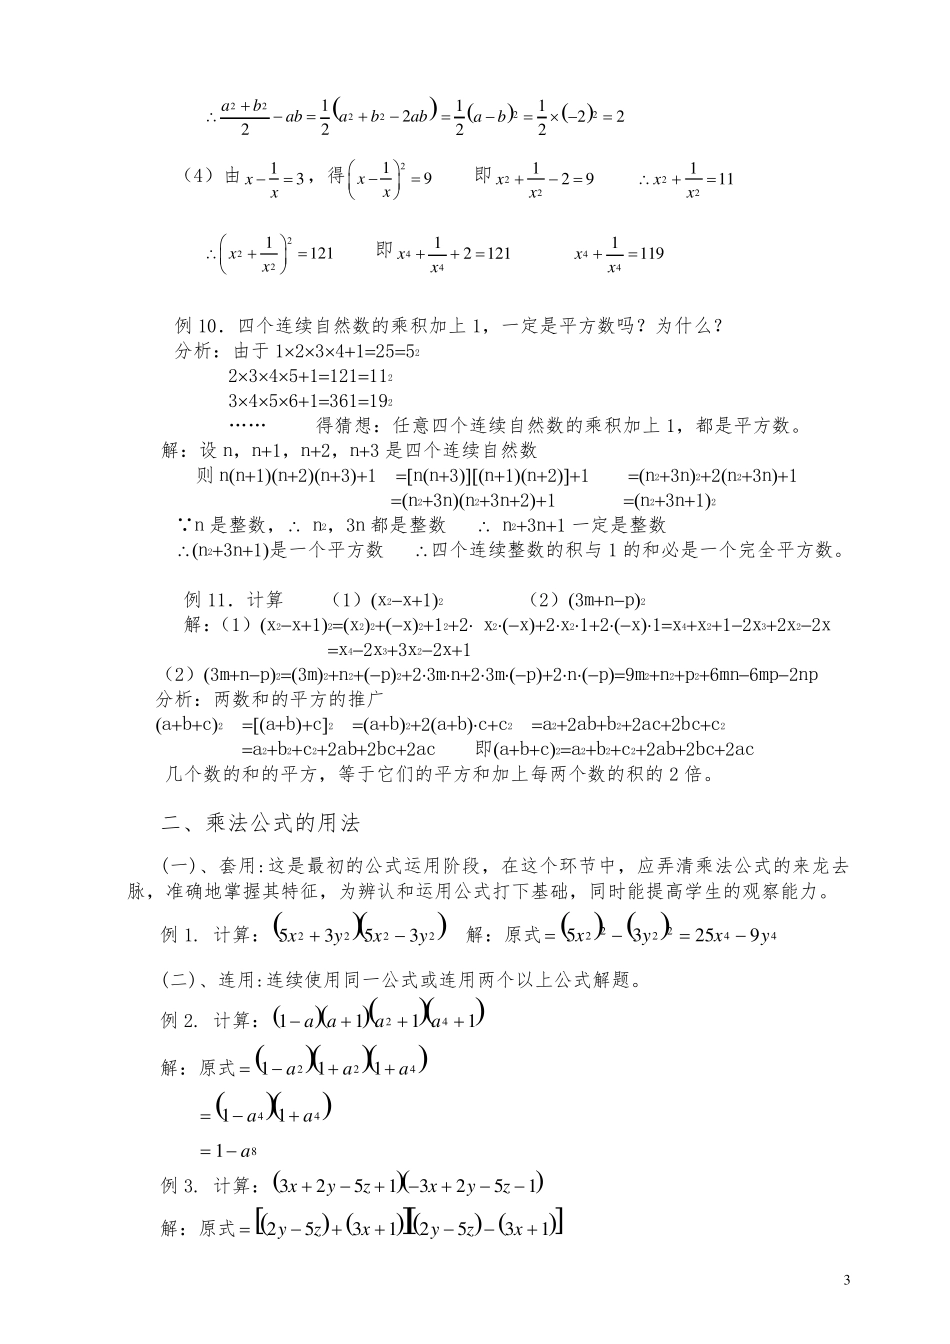 ∴(a²+b²)/2−ab=1/2(a²+b²−2ab)=1/2(a−b)²=1/2×(−2)²=2
（4）由 x−1/x=3，得(x−1/x)²=9 即 x²+1/x²−2=9 ∴x²+1/x²=11
∴(x²+1/x²)²=121 即 x⁴+1/x⁴+2=121 x⁴+1/x⁴=119
例 10．四个连续自然数的乘积加上 1，一定是平方数吗？为什么？
分析：由于 1×2×3×4+1=25=5²
2×3×4×5+1=121=11²
3×4×5×6+1=361=19²
…… 得猜想：任意四个连续自然数的乘积加上 1，都是平方数。
解：设 n，n+1，n+2，n+3 是四个连续自然数
则 n(n+1)(n+2)(n+3)+1 =[n(n+3)][(n+1)(n+2)]+1 =(n²+3n)²+2(n²+3n)+1
=(n²+3n)(n²+3n+2)+1 =(n²+3n+1)²
∵n 是整数，∴ n²，3n 都是整数 ∴ n²+3n+1 一定是整数
∴(n²+3n+1)是一个平方数 ∴四个连续整数的积与 1 的和必是一个完全平方数。
例 11．计算 （1）(x²−x+1)² （2）(3m+n−p)²
解：（1）(x²−x+1)²=(x²)²+(−x)²+1²+2⋅ x²⋅(−x)+2⋅x²⋅1+2⋅(−x)⋅1=x⁴+x²+1−2x³+2x²−2x
=x⁴−2x³+3x²−2x+1
（2）(3m+n−p)²=(3m)²+n²+(−p)²+2⋅3m⋅n+2⋅3m⋅(−p)+2⋅n⋅(−p)=9m²+n²+p²+6mn−6mp−2np
分析：两数和的平方的推广
(a+b+c)² =[(a+b)+c]² =(a+b)²+2(a+b)⋅c+c² =a²+2ab+b²+2ac+2bc+c²
=a²+b²+c²+2ab+2bc+2ac 即(a+b+c)²=a²+b²+c²+2ab+2bc+2ac
几个数的和的平方，等于它们的平方和加上每两个数的积的 2 倍。
二、乘法公式的用法
(一)、套用:这是最初的公式运用阶段，在这个环节中，应弄清乘法公式的来龙去
脉，准确地掌握其特征，为辨认和运用公式打下基础，同时能提高学生的观察能力。
例 1. 计算：(5x²+3y²)(5x²−3y²) 解：原式=(5x²)²−(3y²)²=25x⁴−9y⁴
(二)、连用:连续使用同一公式或连用两个以上公式解题。
例 2. 计算：(1−a)(a+1)(a²+1)(a⁴+1)
解：原式=(1−a²)(1+a²)(1+a⁴)
=(1−a⁴)(1+a⁴)
=1−a⁸
例 3. 计算：(3x+2y−5z+1)(−3x+2y−5z−1)
解：原式=[(2y−5z)+(3x+1)][(2y−5z)−(3x+1)]
3